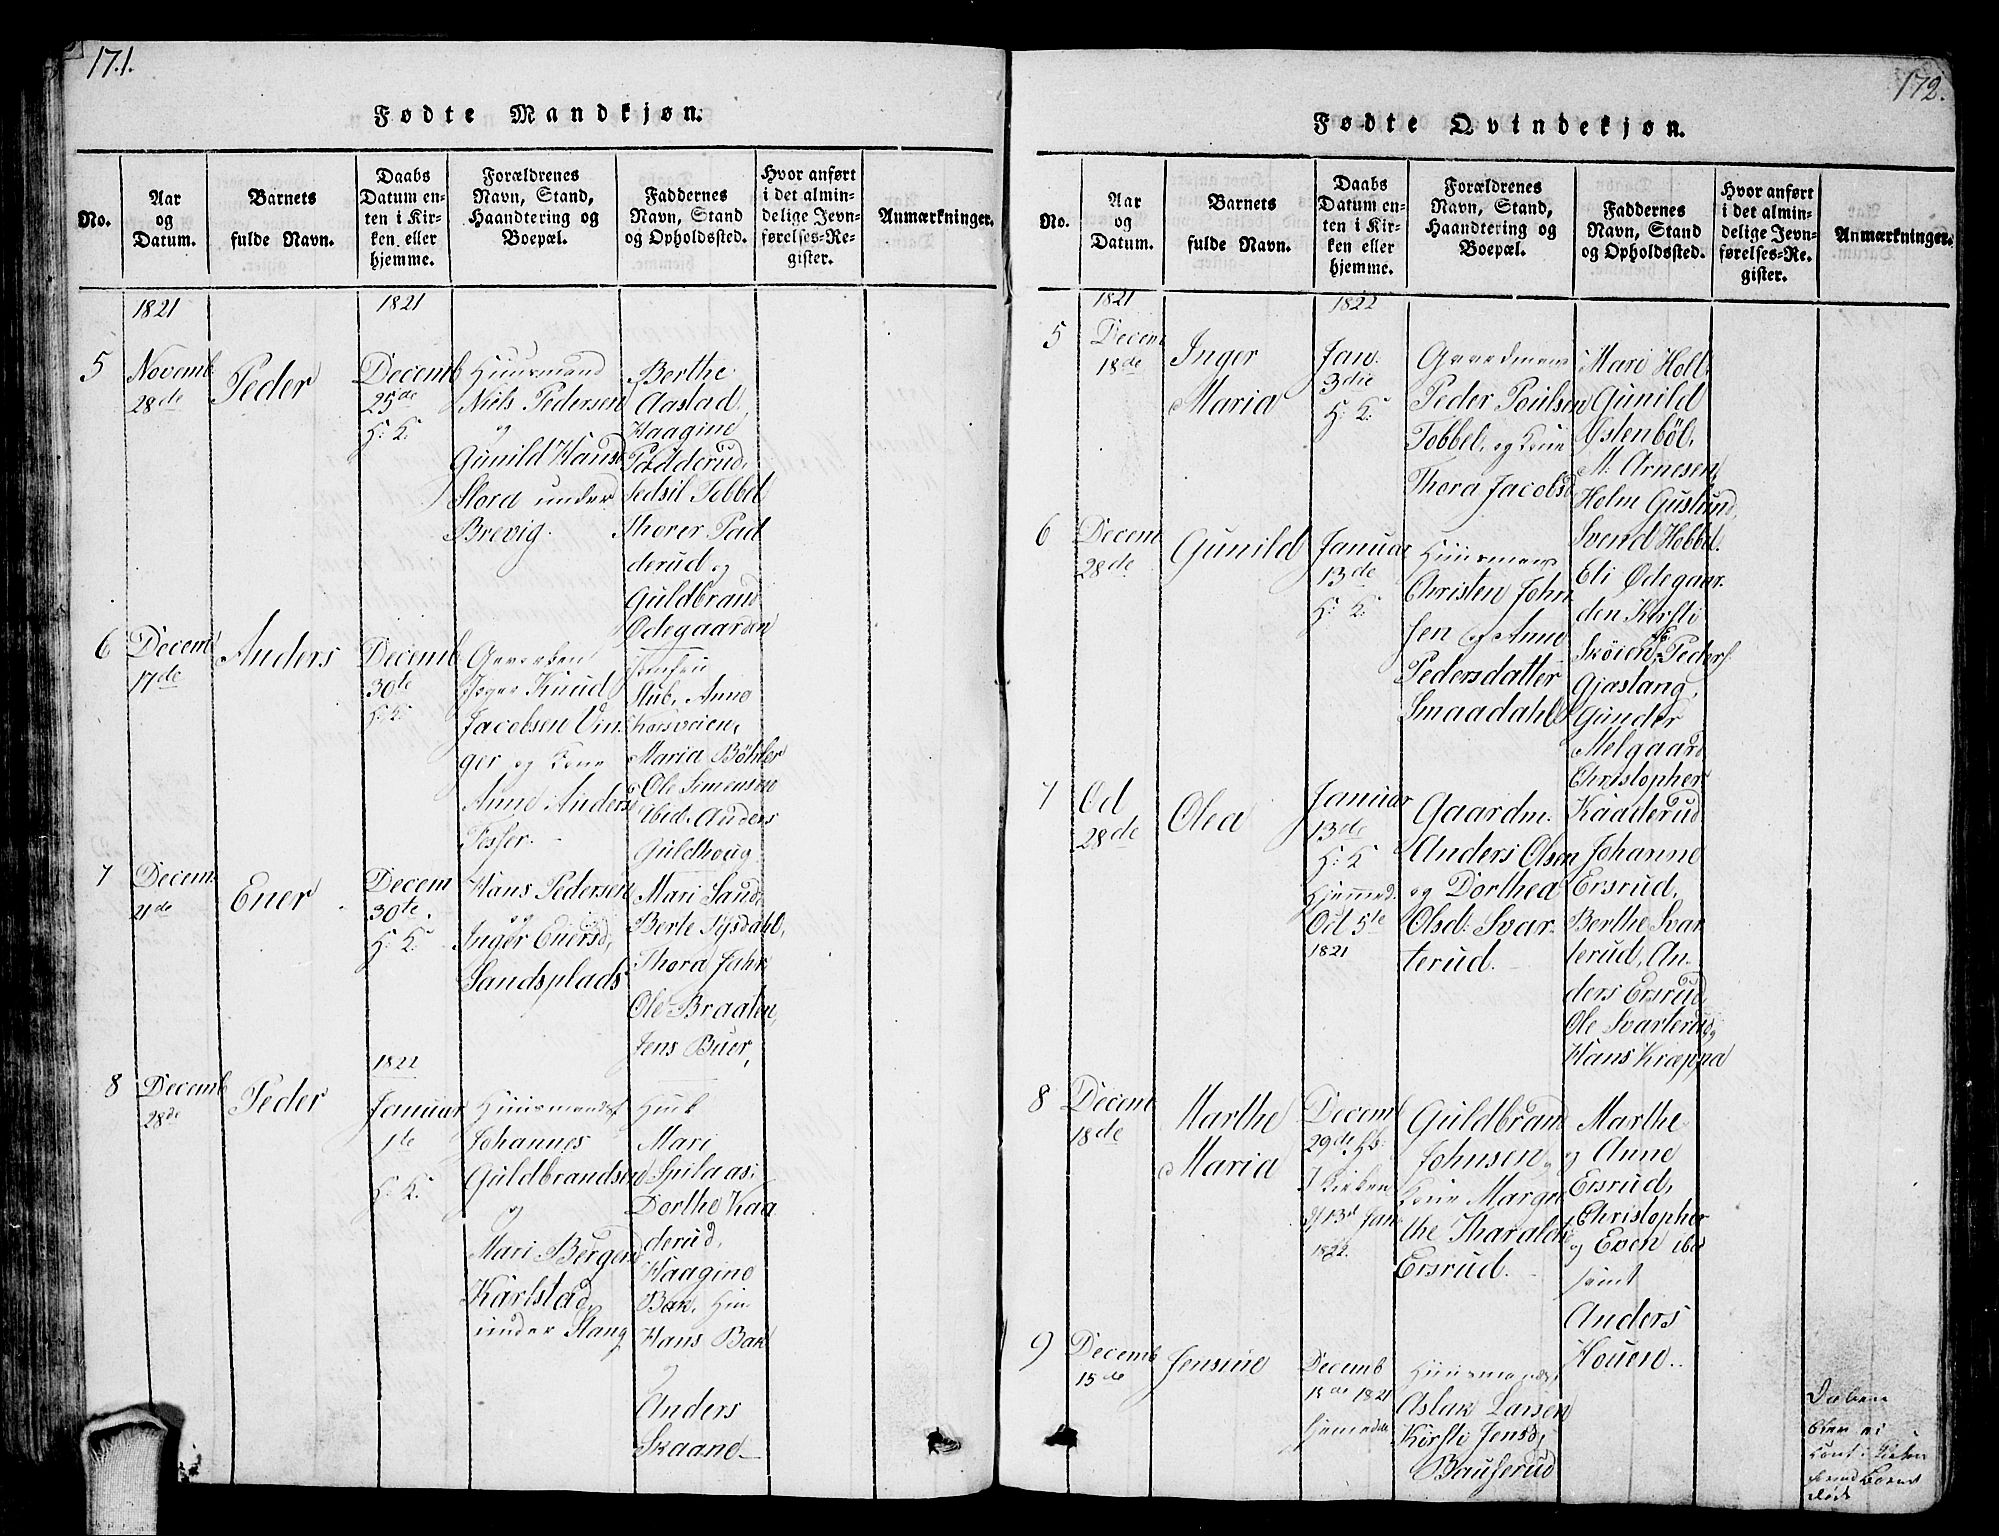 171.
Fødte Mandkjøn.
No.
Aar
og
Datum.
Barnets
fulde Navn.
Daabs
Datum en-
ten i Kir-
ken eller
hjemme.
Forældrenes
Navn, Stand,
Haandtering og
Boepæl.
Faddernes
Navn, Stand
og Opholdssted.
Hvor anført
i det almin-
delige Jevn-
førelses-Re-
gister.
Anmærkninger.
1821
5
Novemb
28de
Peder
1821
Decemb
25de
H: K:
Huusmand
Niels Pedersen
og
Gunild Hansd
Stora under
Brevig.
Berthe
Aastad,
Haagine
Padderud,
Sedsil Tobbel
Thorer Pad
derud og
Guldbrand
Ødegaarden
6
Decemb
17de
Anders
Decemb
30te
H: K:
Knud
Jacobsen Vin
ger og Kone
Anne Anders
Fosser.
Stub, Anne
Korsveien,
Maria Bøhler
Ole Simensen
ibed. Anders
Guldhoug
7
Decem.
21de
Ener
Decem
30te.
H: K:
Hans Pedersen
og
Inger Enersd,
Sandsplads
Mari Sand,
Berte Sysdahl,
Thora Jahr
Ole Braaten,
Jens Buer,
8
Decemb
28de
Peder
1822
Januar
1te
H: K:
Huusmands.
Johannes
Guldbrandsen
og
Mari Bergersd
Karlstad
under Slang
Mari
Spilaas:
Dorthe Kaa
derud,
Haagine
Bak,
Hans Bak
og
Anders
Skaane
172.
Fødte Qvindekjøn.
No.
Aar
og
Datum.
Barnets
fulde Navn.
Daabs
Datum en-
ten i Kir-
ken eller
hjemme.
Forældrenes
Navn, Stand,
Haandtering og
Boepæl.
Faddernes
Navn, Stand
og Opholdssted.
Hvor anført
i det almin-
delige Jevn-
førelses-Re-
gister.
Anmærkninger.
1821
5
Decem
18de
Inger
Maria
1822
Jan.
3die
H: K:
Gaardmand
Peder Poulsen
Tobbel, og Kone
Thora Jacobsd
Mari Holt
Gunild
Ystenbøl,
M: Arnesen,
Holm Guslund,
Svend Hobbel.
6
Decem
28de
Gunild
Januar
13de
H: K:
Huusmand
Christen John
sen og Anne
Pedersdatter
Smaadahl
Eli Ødegaar
den Kirsti
Skøien, Peders
Gjaslang,
Gunder
Melgaard
Christopher
Kaadderud
7
Od
28de
Olea
Januar
13de
H: K
Hjemmed.
Oct 5te
1821
Gaardm.
Anders Olsen
og Dorthea
Olsd: Svar
terud.
Johanne
Ersrud,
Berthe Svar
terud, An
ders Ersrud
Ole Svarterud og
Hans Kræppa
8
Decem
18de
Marthe
Maria
Decemb
29de
I Kirken
13d Jan
1822.
Guldbrand
Johnsen og
Kone Margre
the Tharaldsd
Ersrud.
Marthe
og Anne
Ersrud,
Christopher
og Even ibd
samt
Anders
Houen..
9
Decemb
15de
Jensine
Decemb
18de 1821
Hjemedøbt
Huusmands,
Aslak Larsen
Kirsti Jensd,
Bauserud